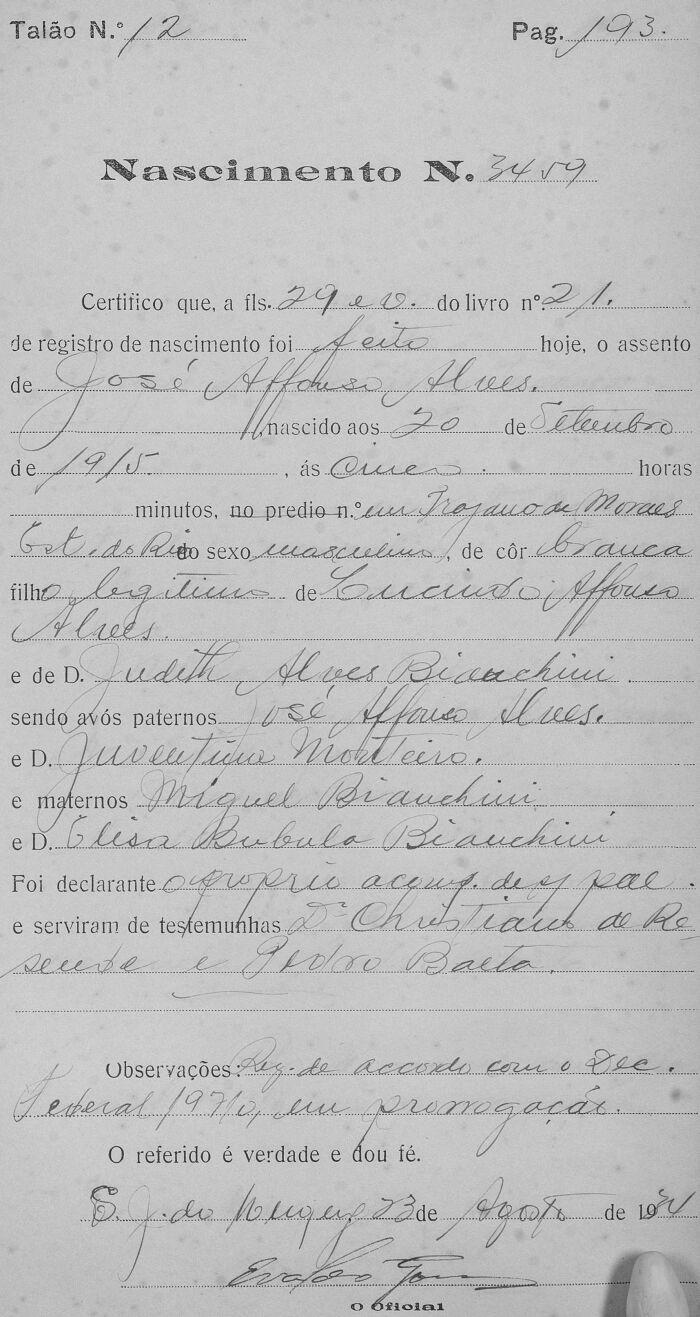 Talão N.º 12 Pag. 193.
Nascimento N. 3459
Certifico que, a fls. 29 e v. do livro nº. 21.
de registro de nascimento foi feito hoje, o assento
de José Affonso Alves.
, nascido aos 20 de Setembro
de 1915. , ás Cinco horas
minutos, no predio n.º em Trajano de Moraes
Est. do Rio do sexo masculino, de côr branca
filho legitimo de Lucindo Affonso
Alves.
e de D. Judith Alves Bianchini
sendo avós paternos José Affonso Alves.
e D. Juventina Monteiro.
e maternos Miguel Bianchini
e D. Elisa Bubula Bianchini
Foi declarante o proprio acomp. de s/ pae.
e serviram de testemunhas Dr. Christiano de Re-
sende e Pedro Baeta.
Observações: Reg. de accordo com o Dec.
Federal 19710, em prorrogação.
O referido é verdade e dou fé.
S. J. do 23 de Agosto de 1934
Evaldo
O Oficial